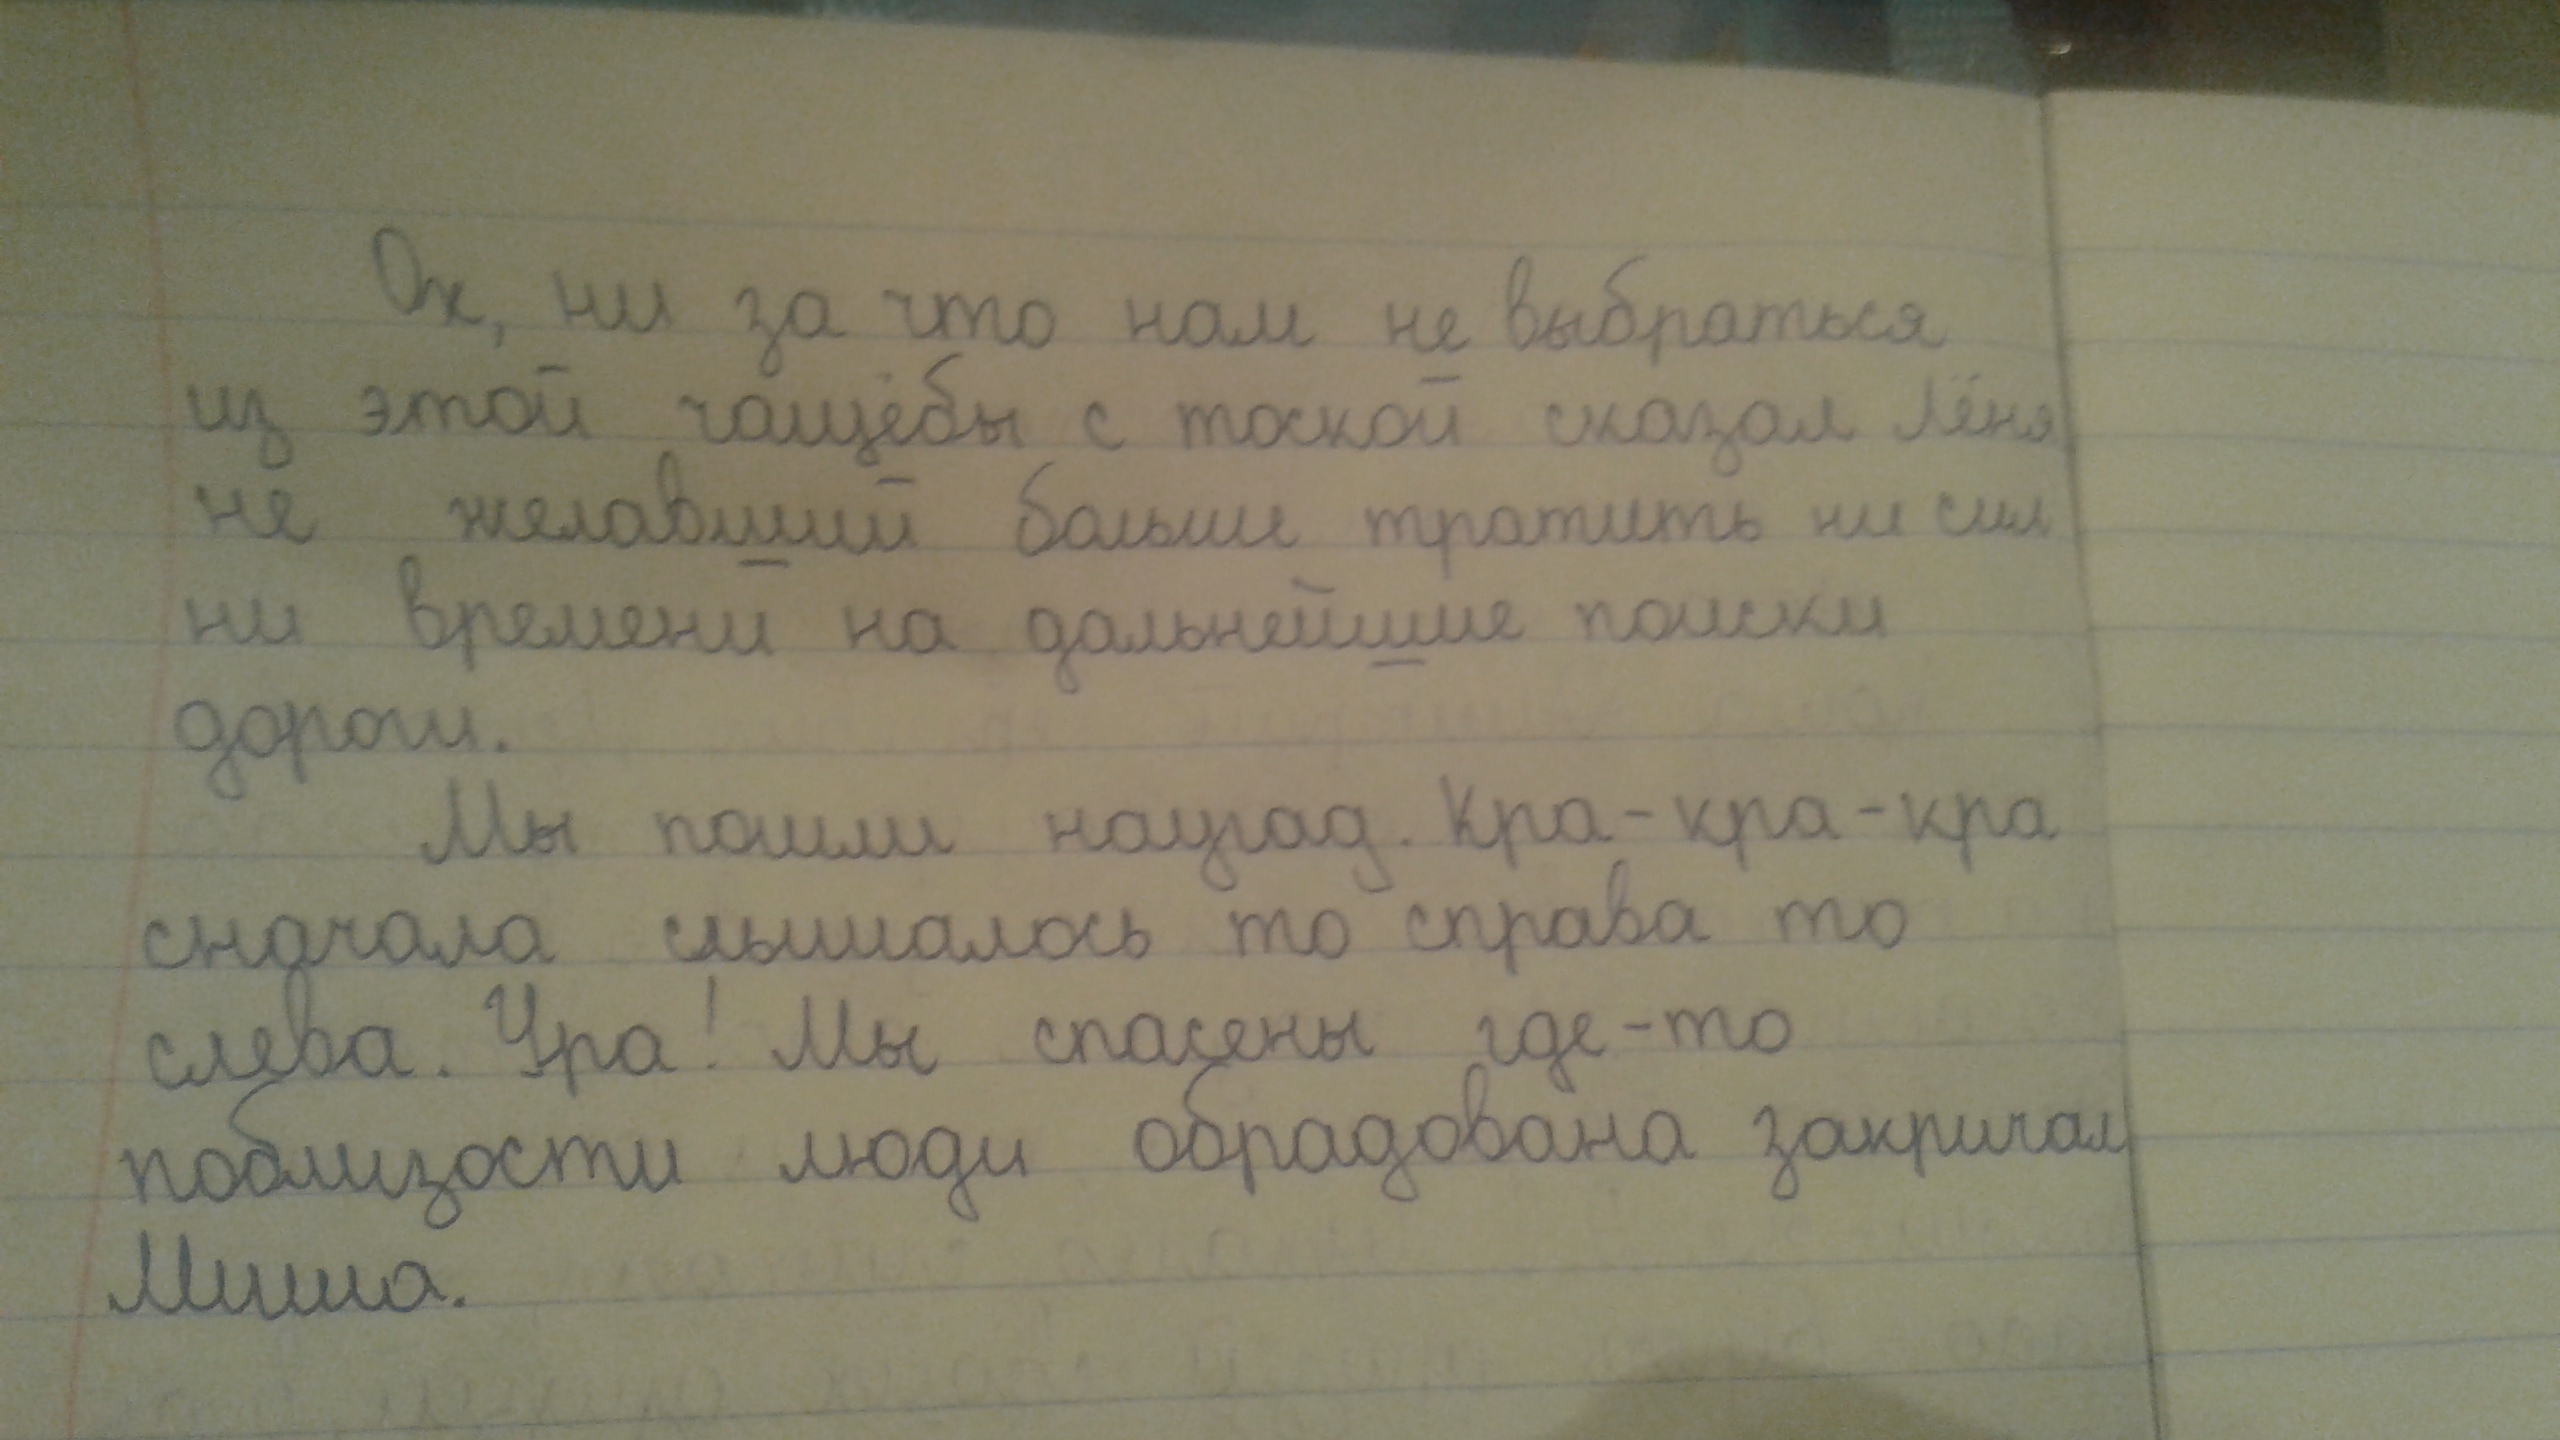 Ох, ни за что нам не выбраться
из этой чащёбы с тоской сказал Лёня
не желавший больше тратить ни сил
ни времени на дальнейшие поиски
дороги.
Мы пошли наугад. Кра-кра-кра
сначала слышалось то справа то
слева. Ура! Мы спасены где-то
поблизости люди обрадована закричал
Миша.